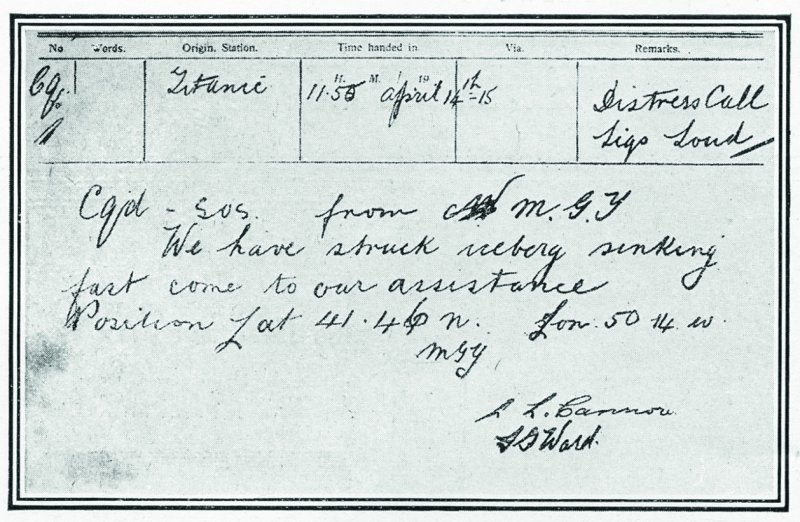 No. Words. Origin. Station. Time handed in. Via. Remarks.
H. M. 19
Titanic 11.50 April 14th-15 Distress Call
1 Sigs Loud
Cqd - SOS. from M.G.Y
We have struck iceberg sinking
fast come to our assistance
Position Lat 41.46 n. Lon. 50 14 w.
MGY
L. Cannon
Ward.